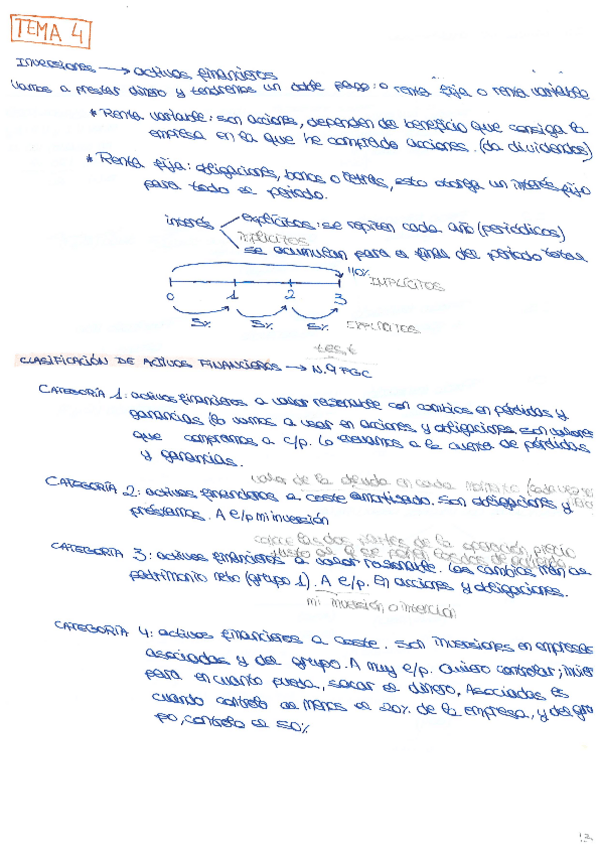 TEMA 4
INVERSIONES → activos financieros
Vamos a prestar dinero y tendremos un doble pago: o renta fija o renta variable
* Renta variable: son acciones, dependen de beneficio que consiga la
empresa en la que he comprado acciones. (da dividendos)
* Renta fija: obligaciones, bonos o letras, esto otorga un interés fijo
para todo el periodo.
interés
explícitos: se repiten cada año (periódicos)
implícitos
se acumulan para el final del periodo total
40% IMPLÍCITOS
0 1 2 3
5% 5% 5% EXPLÍCITOS
CLASIFICACIÓN DE ACTIVOS FINANCIEROS → N.9 PGC
CATEGORÍA 1: activos financieros a valor razonable con cambios en pérdidas y
ganancias (lo vamos a usar en acciones y obligaciones son valores
que compramos a c/p. Lo llevamos a la cuenta de pérdidas
y ganancias.
valor de la deuda en cada momento
CATEGORÍA 2: activos financieros a coste amortizado. Son obligaciones y
préstamos. A e/p mi inversión
sobre las dos partes de la operación, precio
justo al que se
CATEGORÍA 3: activos financieros a valor razonable. Los cambios irán al
patrimonio neto (grupo 1). A e/p. En acciones y obligaciones.
mi inversión o intención
CATEGORÍA 4: activos financieros a coste. Son inversiones en empresas
asociadas y del grupo. A muy e/p. Quiero controlar;
para en cuanto pueda, sacar el dinero, Asociadas es
cuando controlo al menos el 20% de la empresa, y del gru
po, controlo el 50%